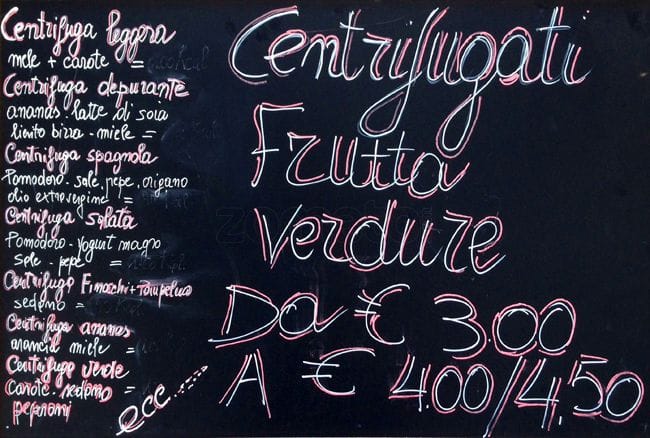 Centrifuga leggera
mele + carote =
Centrifuga depurante
ananas. latte di soia
lievito birra - miele =
Centrifuga spagnola
Pomodoro. sale. pepe. origano
olio extravergine =
Centrifuga salata
Pomodoro - yogurt magro
sale - pepe =
Centrifuga Finocchi + Pompelmo
sedano =
Centrifuga ananas
arancia miele =
Centrifuga verde
carote. sedano
peperoni
ecc.....
Centrifugati
Frutta
Verdure
Da € 3.00
A € 4.00/4.50